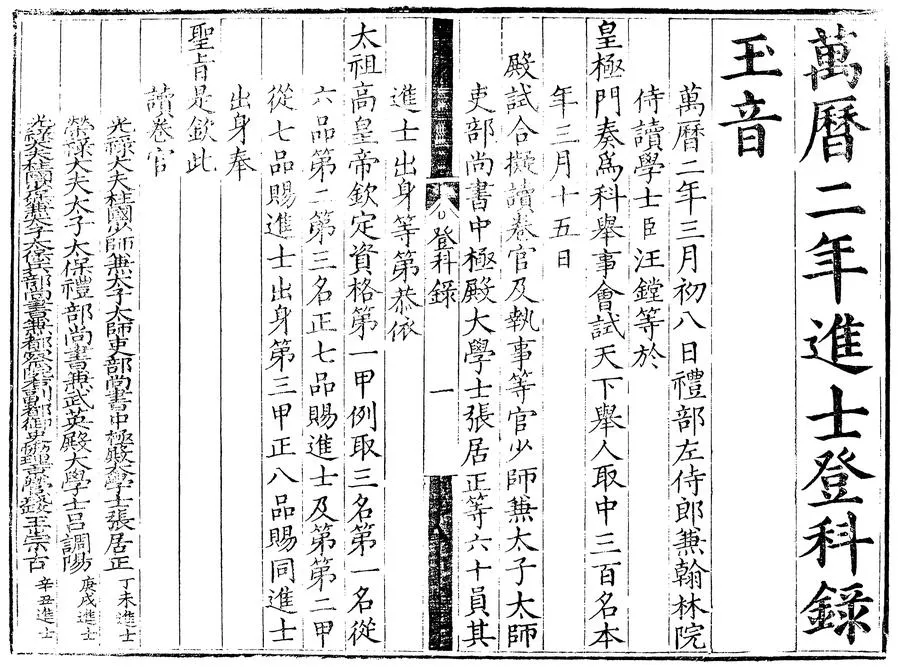 萬曆二年進士登科録
玉音
萬曆二年三月初八日禮部左侍郎兼翰林院
侍讀學士臣汪鏜等於
皇極門奏爲科舉事會試天下舉人取中三百名本
年三月十五日
殿試合擬讀卷官及執事等官少師兼太子太師
吏部尚書中極殿大學士張居正等六十員其
登科録 一
進士出身等第恭依
太祖高皇帝欽定資格第一甲例取三名第一名從
六品第二第三名正七品賜進士及第第二甲
從七品賜進士出身第三甲正八品賜同進士
出身奉
聖旨是欽此
讀卷官
光禄大夫柱國少師兼太子太師吏部尚書中極殿大學士張居正 丁未進士
榮禄大夫太子太保禮部尚書兼武英殿大學士吕調陽 庚戌進士
光禄大夫柱國少保兼太子太保兵部尚書兼都察院右副都御史京營王崇古 辛丑進士